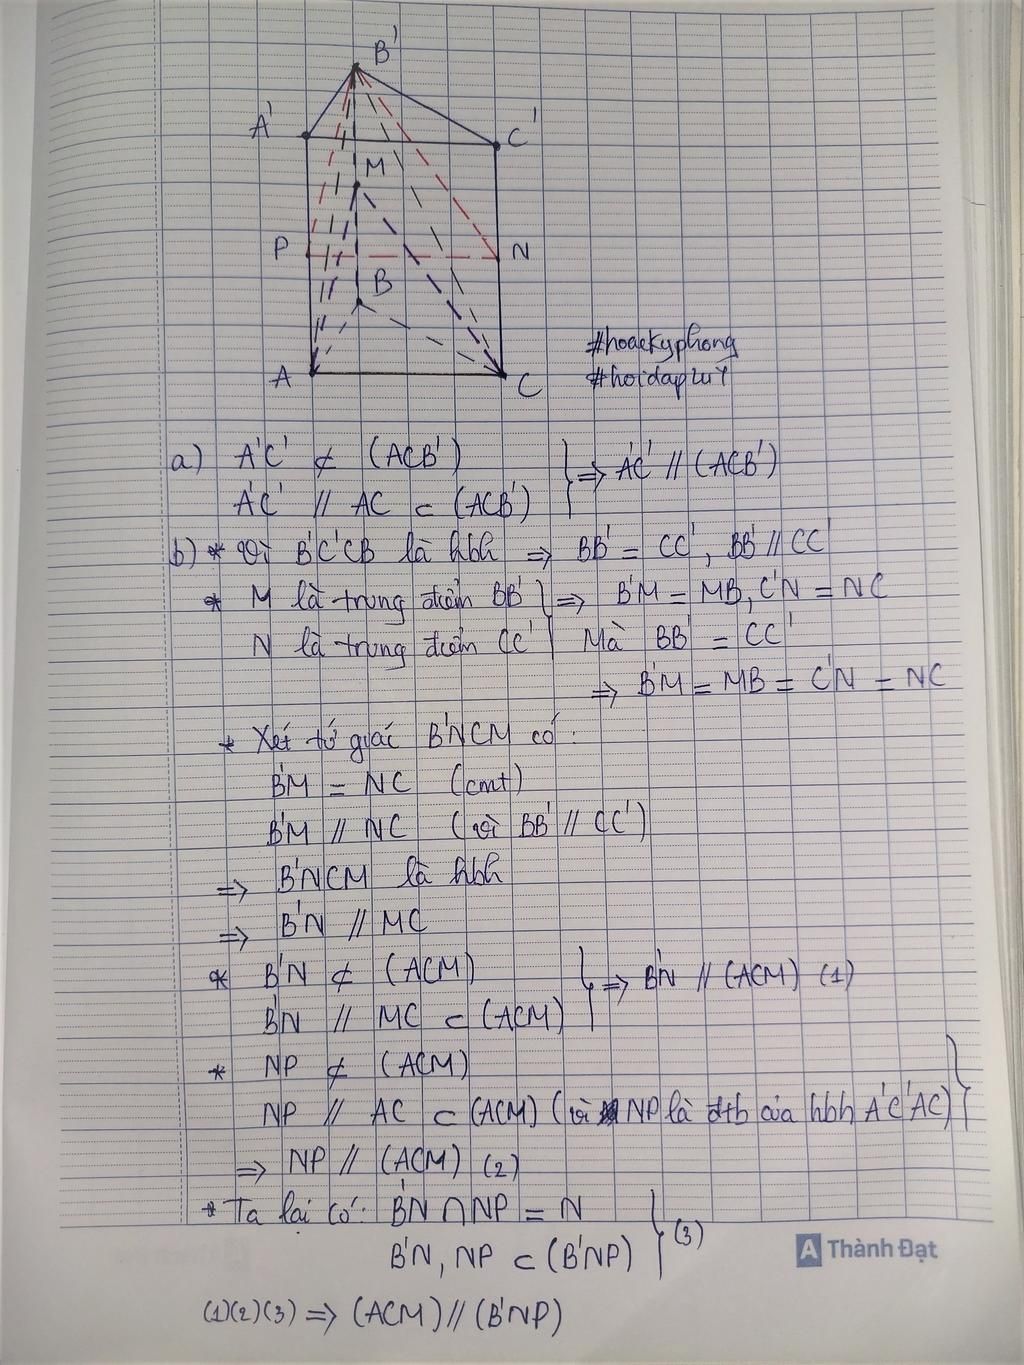 B'
A'
C'
M
P
N
B
A
C
#hoackyphong
#hoidap247
a) A'C' ⊄ (ACB')
A'C' // AC ⊂ (ACB')
} => A'C' // (ACB')
b) * Vì B'C'CB là hbh => BB' = CC', BB' // CC'
* M là trung điểm BB' } => B'M = MB, C'N = NC
N là trung điểm CC' } Mà BB' = CC'
=> B'M = MB = C'N = NC
* Xét tứ giác B'NCM có:
B'M = NC (cmt)
B'M // NC (vì BB' // CC')
=> B'NCM là hbh
=> B'N // MC
* B'N ⊄ (ACM)
B'N // MC ⊂ (ACM)
} => B'N // (ACM) (1)
* NP ⊄ (ACM)
NP // AC ⊂ (ACM) (vì NP là đtb của hbh A'C'AC) }
=> NP // (ACM) (2)
* Ta lại có: B'N ∩ NP = N
B'N, NP ⊂ (B'NP) } (3)
A Thành Đạt
(1)(2)(3) => (ACM) // (B'NP)